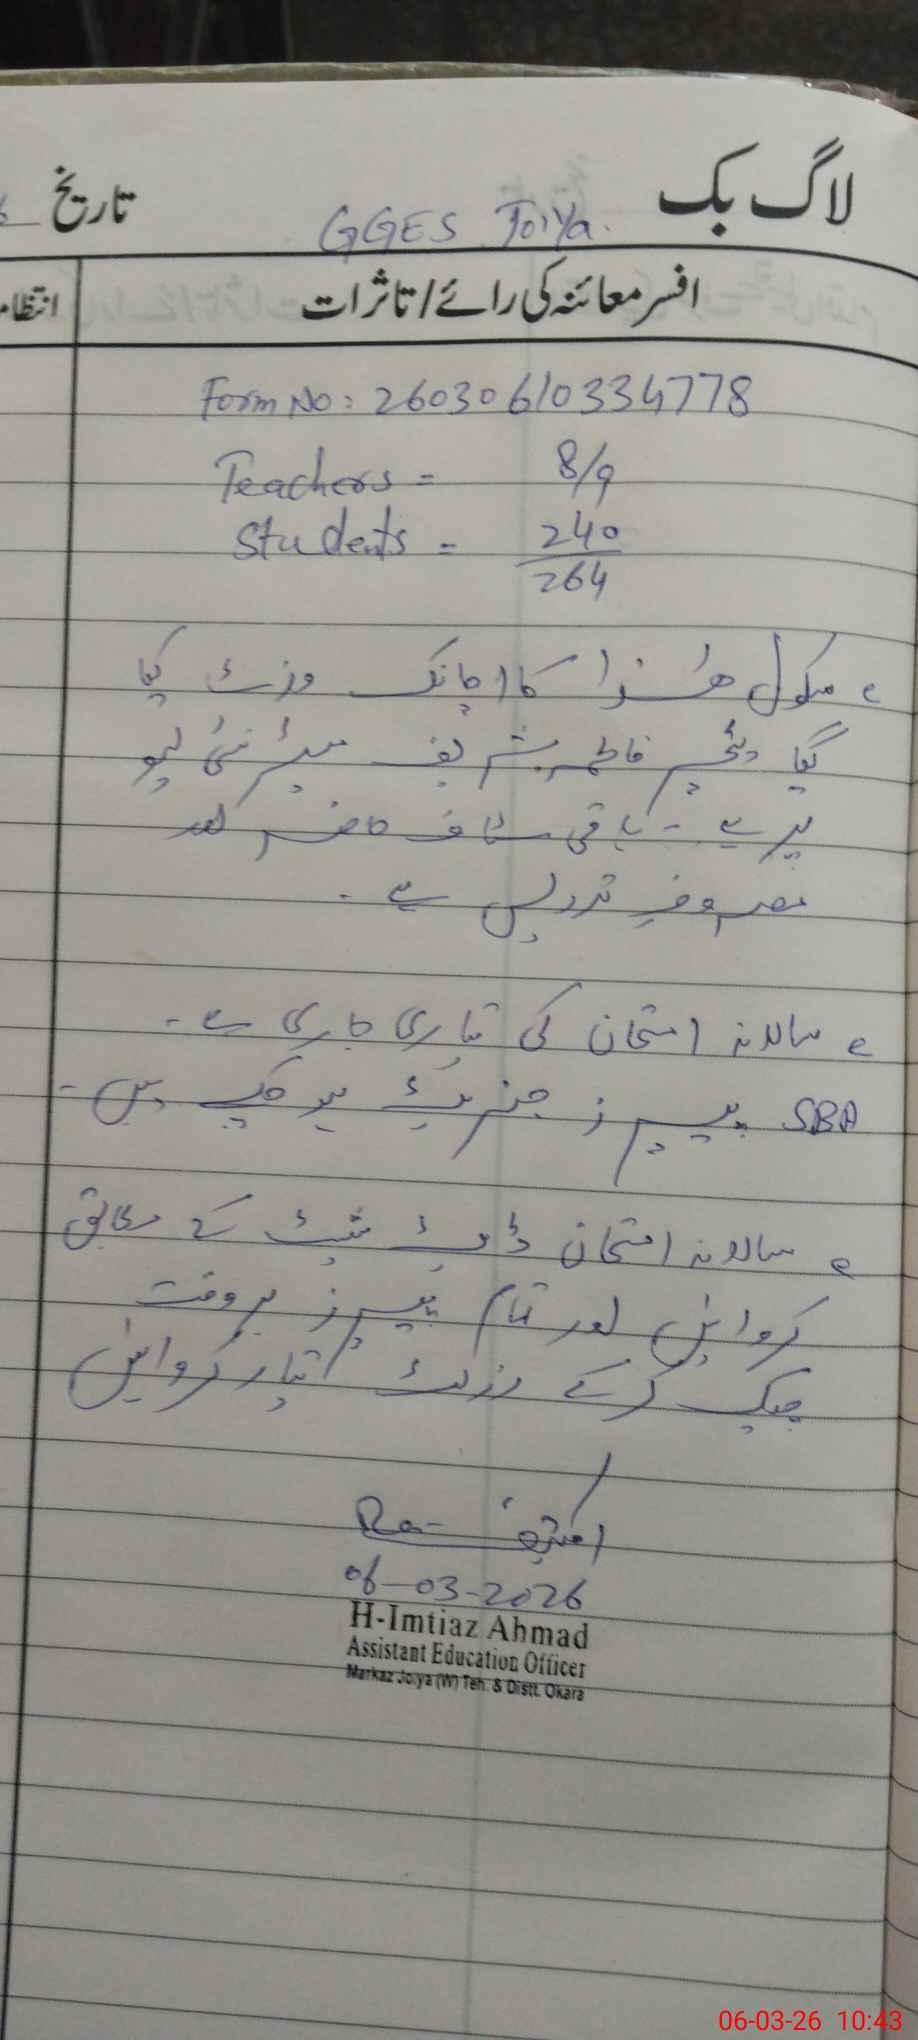 لاگ بک GGES Joiya. تاریخ
افسر معائنہ کی رائے/تاثرات انتظام
Form No: 260306103334778
Teachers = 8/9
Students = 240
264
سکول ھذا کا اچانک وزٹ کیا
گیا ٹیچر فاطمہ شریف میٹرنٹی لیو
پر ہے - باقی سٹاف حاضر اور
مصروفِ تدریس ہے -
سالانہ امتحان کی تیاری جاری ہے -
SBA پیپرز جنریٹ ہو چکے ہیں -
سالانہ امتحان ڈیٹ شیٹ کے مطابق
کروائیں اور تمام پیپرز بروقت
چیک کر کے رزلٹ تیار کروائیں
06-03-2026
H-Imtiaz Ahmad
Assistant Education Officer
Markaz Joiya (W) Teh. & Distt. Okara
06-03-26 10:43